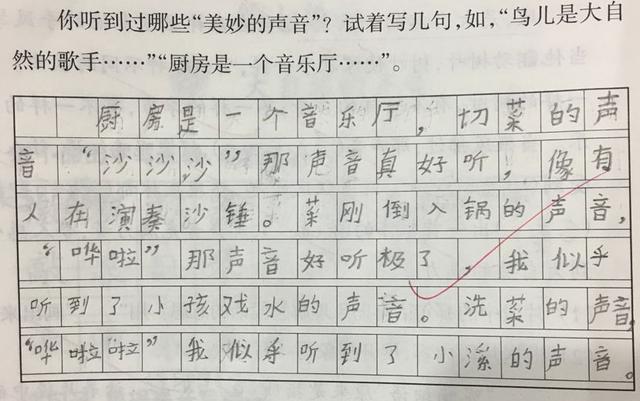 你听到过哪些“美妙的声音”？试着写几句，如，“鸟儿是大自
然的歌手……”“厨房是一个音乐厅……”。
厨房是一个音乐厅，切菜的声
音“沙沙沙”那声音真好听，像有
人在演奏沙锤。菜刚倒入锅的声音，
“哗啦”那声音好听极了，我似乎
听到了小孩戏水的声音。洗菜的声音。
“哗啦啦”我似乎听到了小溪的声音。